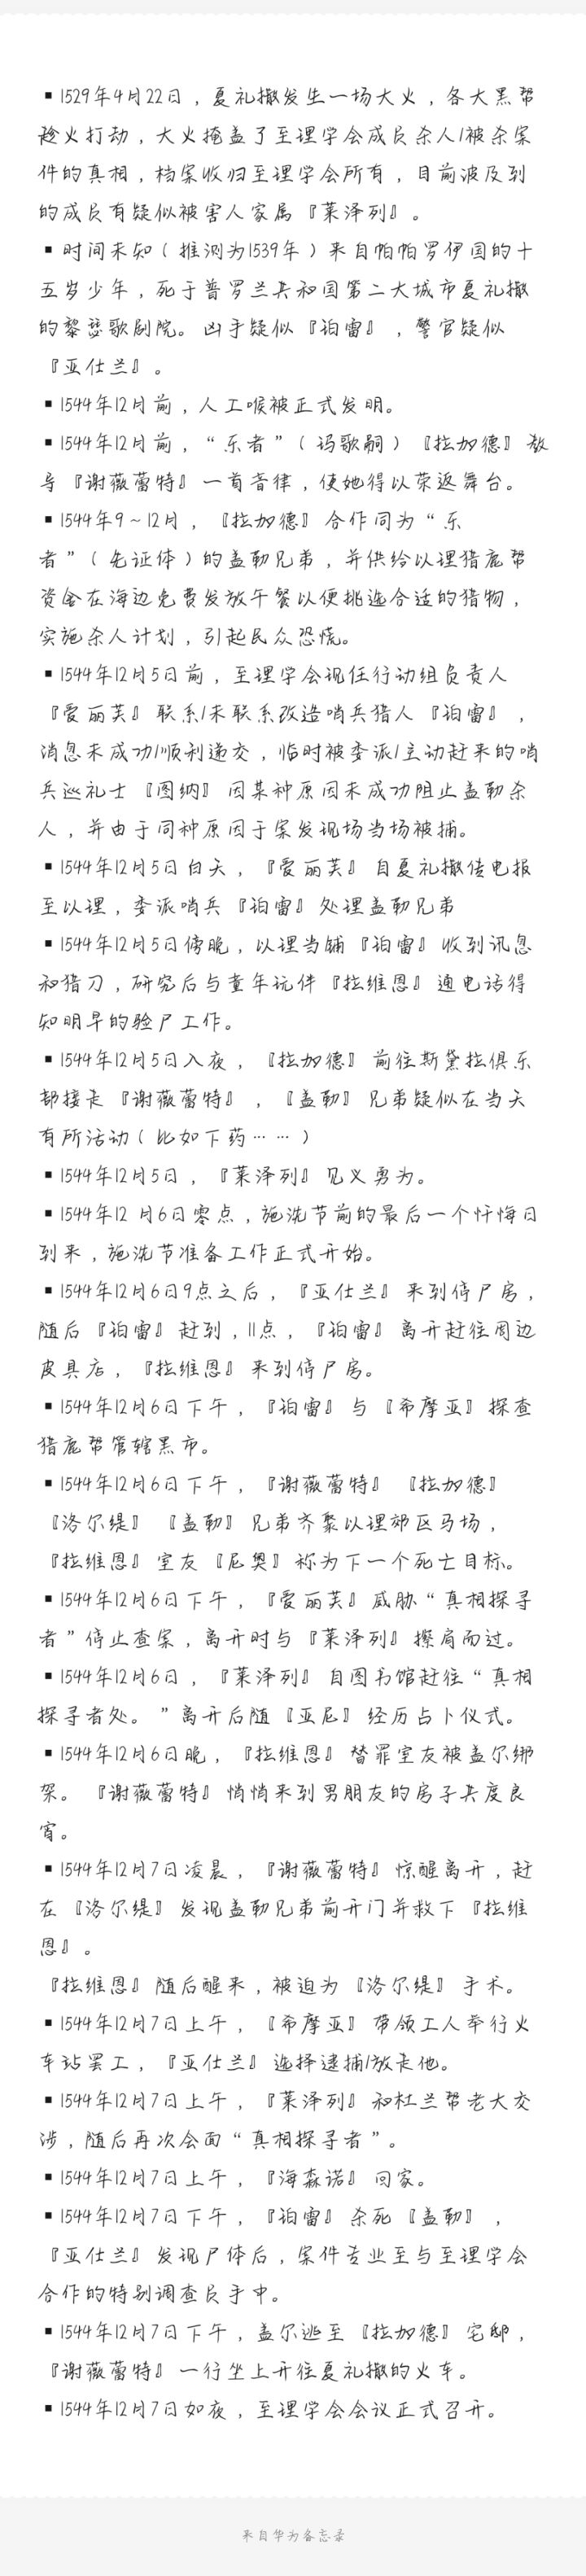 ▪1529年4月22日，夏礼撒发生一场大火，各大黑帮
趁火打劫，大火掩盖了至理学会成员杀人/被杀案
件的真相，档案收归至理学会所有，目前波及到
的成员有疑似被害人家属『莱泽列』。
▪时间未知（推测为1539年）来自帕帕罗伊国的十
五岁少年，死于普罗兰共和国第二大城市夏礼撒
的黎瑟歌剧院。凶手疑似『铂雷』，警官疑似
『亚仕兰』。
▪1544年12月前，人工喉被正式发明。
▪1544年12月前，“乐者”（玛歌嗣）『拉加德』教
导『谢薇蕾特』一首音律，使她得以荣返舞台。
▪1544年9~12月，『拉加德』合作同为“乐
者”（先证体）的盖勒兄弟，并供给以理猎鹿帮
资金在海边免费发放午餐以便挑选合适的猎物，
实施杀人计划，引起民众恐慌。
▪1544年12月5日前，至理学会现任行动组负责人
『爱丽芙』联系/未联系改造哨兵猎人『铂雷』，
消息未成功/顺利递交，临时被委派/主动赶来的哨
兵巡礼士『图纳』因某种原因未成功阻止盖勒杀
人，并由于同种原因于案发现场当场被捕。
▪1544年12月5日白天，『爱丽芙』自夏礼撒传电报
至以理，委派哨兵『铂雷』处理盖勒兄弟
▪1544年12月5日傍晚，以理当铺『铂雷』收到讯息
和猎刀，研究后与童年玩伴『拉维恩』通电话得
知明早的验尸工作。
▪1544年12月5日入夜，『拉加德』前往斯黛拉俱乐
部接走『谢薇蕾特』，『盖勒』兄弟疑似在当天
有所活动（比如下药……）
▪1544年12月5日，『莱泽列』见义勇为。
▪1544年12月6日零点，施洗节前的最后一个忏悔日
到来，施洗节准备工作正式开始。
▪1544年12月6日9点之后，『亚仕兰』来到停尸房，
随后『铂雷』赶到，11点，『铂雷』离开赶往周边
皮具店，『拉维恩』来到停尸房。
▪1544年12月6日下午，『铂雷』与『希摩亚』探查
猎鹿帮管辖黑市。
▪1544年12月6日下午，『谢薇蕾特』『拉加德』
『洛尔缇』『盖勒』兄弟齐聚以理郊区马场，
『拉维恩』室友『尼奥』称为下一个死亡目标。
▪1544年12月6日下午，『爱丽芙』威胁“真相探寻
者”停止查案，离开时与『莱泽列』擦肩而过。
▪1544年12月6日，『莱泽列』自图书馆赶往“真相
探寻者处。”离开后随『亚尼』经历占卜仪式。
▪1544年12月6日晚，『拉维恩』替罪室友被盖尔绑
架。『谢薇蕾特』悄悄来到男朋友的房子共度良
宵。
▪1544年12月7日凌晨，『谢薇蕾特』惊醒离开，赶
在『洛尔缇』发现盖勒兄弟前开门并救下『拉维
恩』。
『拉维恩』随后醒来，被迫为『洛尔缇』手术。
▪1544年12月7日上午，『希摩亚』带领工人举行火
车站罢工，『亚仕兰』选择逮捕/放走他。
▪1544年12月7日上午，『莱泽列』和杜兰帮老大交
涉，随后再次会面“真相探寻者”。
▪1544年12月7日上午，『海森诺』回家。
▪1544年12月7日下午，『铂雷』杀死『盖勒』，
『亚仕兰』发现尸体后，案件专业至与至理学会
合作的特别调查员手中。
▪1544年12月7日下午，盖尔逃至『拉加德』宅邸，
『谢薇蕾特』一行坐上开往夏礼撒的火车。
▪1544年12月7日如夜，至理学会会议正式召开。
来自华为备忘录